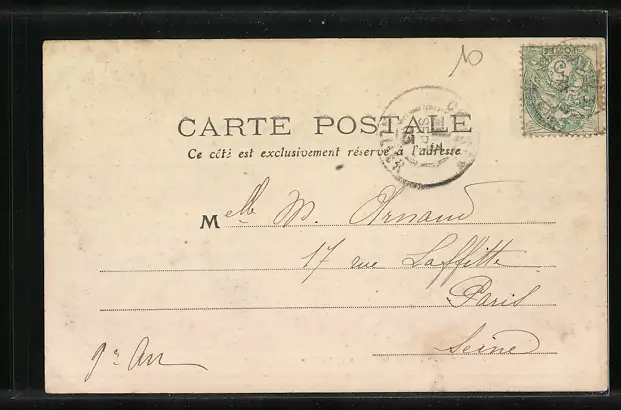 10
POSTES
CARTE POSTALE
Ce côté est exclusivement réservé à l'adresse
Melle M. Arnaud
17 rue Laffitte
Paris
Seine